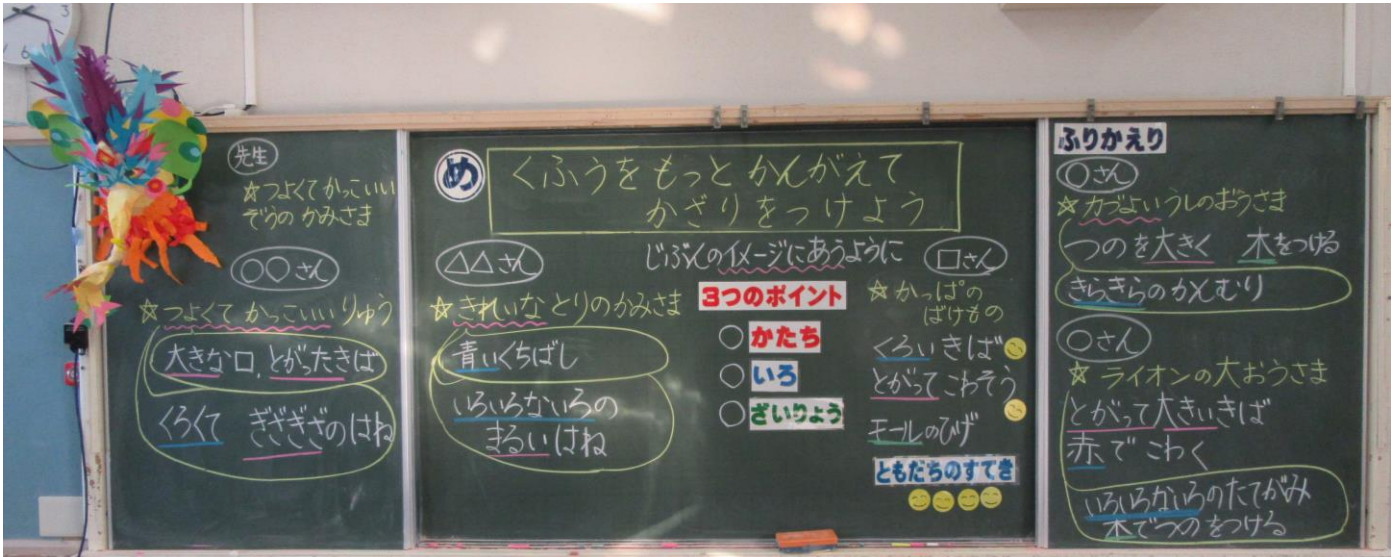 先生
☆つよくてかっこいい
ぞうのかみさま
○○さん
☆つよくてかっこいいりゅう
大きな口、とがったきば
くろくて ぎざぎざのはね
め
くふうをもっとかんがえて
かざりをつけよう
△△さん
☆きれいなとりのかみさま
青いくちばし
いろいろないろの
まるいはね
じぶんのイメージにあうように
3つのポイント
○かたち
○いろ
○ざいりょう
□さん
☆かっぱの
ばけもの
くろいきば
とがってこわそう
モールのひげ
ともだちのすてき
ふりかえり
○さん
☆カづよいうしのおうさま
つのを大きく 木をつける
きらきらのかんむり
○さん
☆ライオンの大おうさま
とがって大きいきば
赤でこわく
いろいろないろのたてがみ
木でつのをつける
3
6